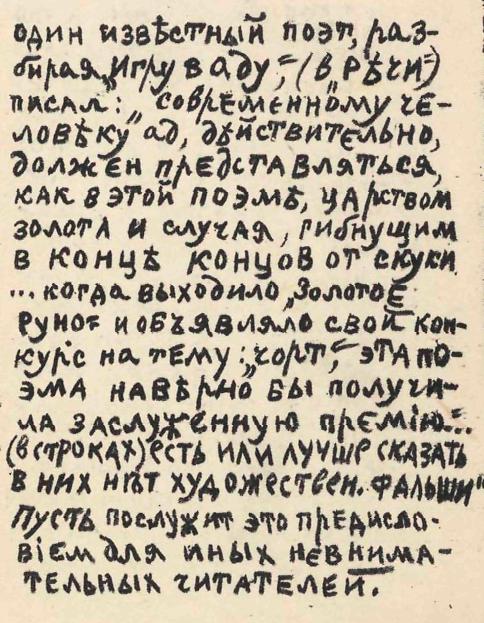 один извѣстный поэт, раз-
бирая „Игру в аду“, (в „Рѣчи“)
писал: „современному че-
ловѣку ад, дѣйствительно,
должен представляться,
как в этой поэмѣ, царством
золота и случая, гибнущим
в концѣ концов от скуки
... когда выходило „Золотое
Руно“ и объявляло свой кон-
курс на тему: „чорт“, эта по-
эма навѣрно бы получи-
ла заслуженную премію...
(в строках) есть или лучше сказать
в них нѣт художествен. фальши“
Пусть послужит это предисло-
віем для иных невнима-
тельных читателей.